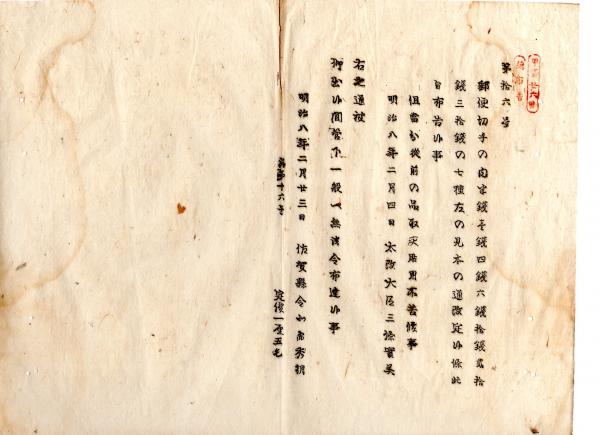 第拾六号
郵便切手の内半錢壱錢四錢六錢拾錢貳拾
錢三拾錢の七種左の見本の通改定候條此
旨布告候事
但當分従前の品取交相用不苦候事
明治八年二月四日 太政大臣三條實美
右之通被
仰出候間管下一般無洩令布達候事
明治八年二月廿三日 佐賀縣令 秀朝
第 十六号
定價一厘五毛